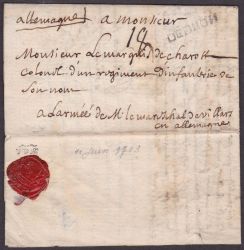 allemagne a Monsieur
18
Monsieur Le marquis de charost
Colonel d'un regiment d'infanterie de
Son nom
a Larmée de Mr le mareschal de villars
en allemagne